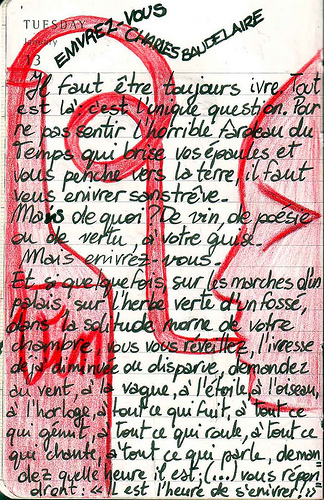 TUESDAY
January
13
ENIVREZ-VOUS
CHARLES BAUDELAIRE
Il faut être toujours ivre. Tout
est là: c'est l'unique question. Pour
ne pas sentir l'horrible fardeau du
Temps qui brise vos épaules et
vous penche vers la terre, il faut
vous enivrer sans trêve.
Mais de quoi? De vin, de poésie
ou de vertu, à votre guise.
Mais enivrez-vous.
Et si quelquefois, sur les marches d'un
palais, sur l'herbe verte d'un fossé,
dans la solitude morne de votre
chambre, vous vous réveillez, l'ivresse
déjà diminuée ou disparue, demandez
au vent, à la vague, à l'étoile à l'oiseau,
à l'horloge, à tout ce qui fuit, à tout ce
qui gémit, à tout ce qui roule, à tout ce
qui chante, à tout ce qui parle, deman
dez quelle heure il est; (...) vous répon
dront: « il est l'heure de s'enivrer! »